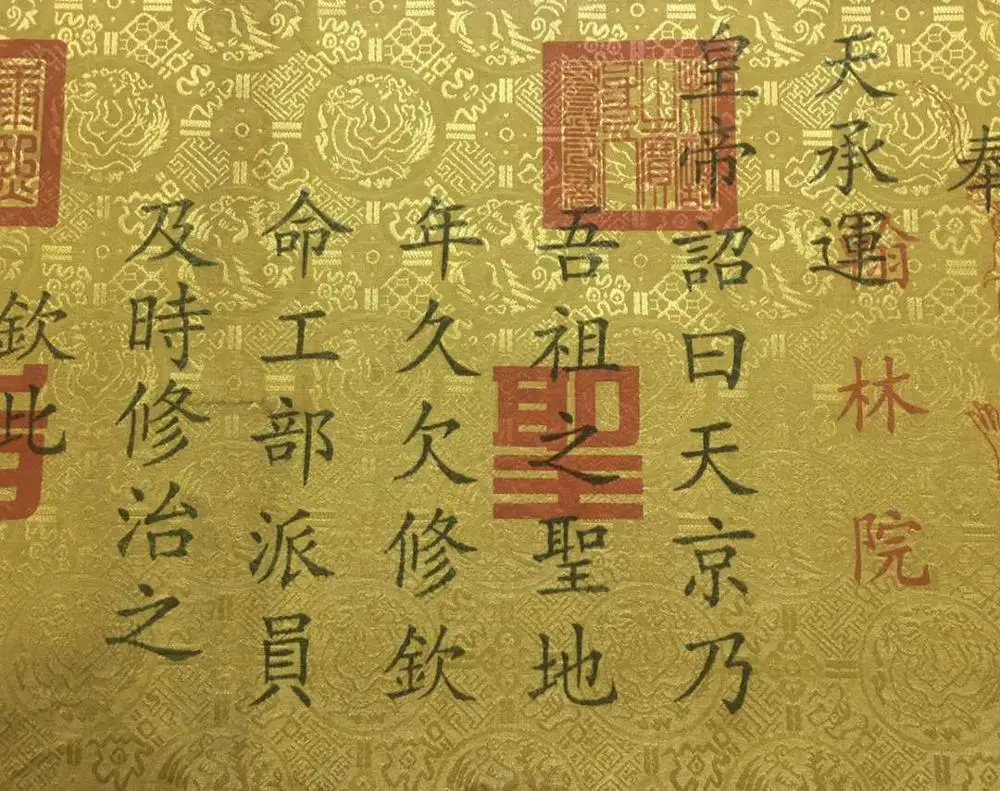 奉
天承運
皇帝詔曰天京乃
吾祖之聖地
年久欠修欽
命工部派員
及時修治之
欽此
翰林院
聖